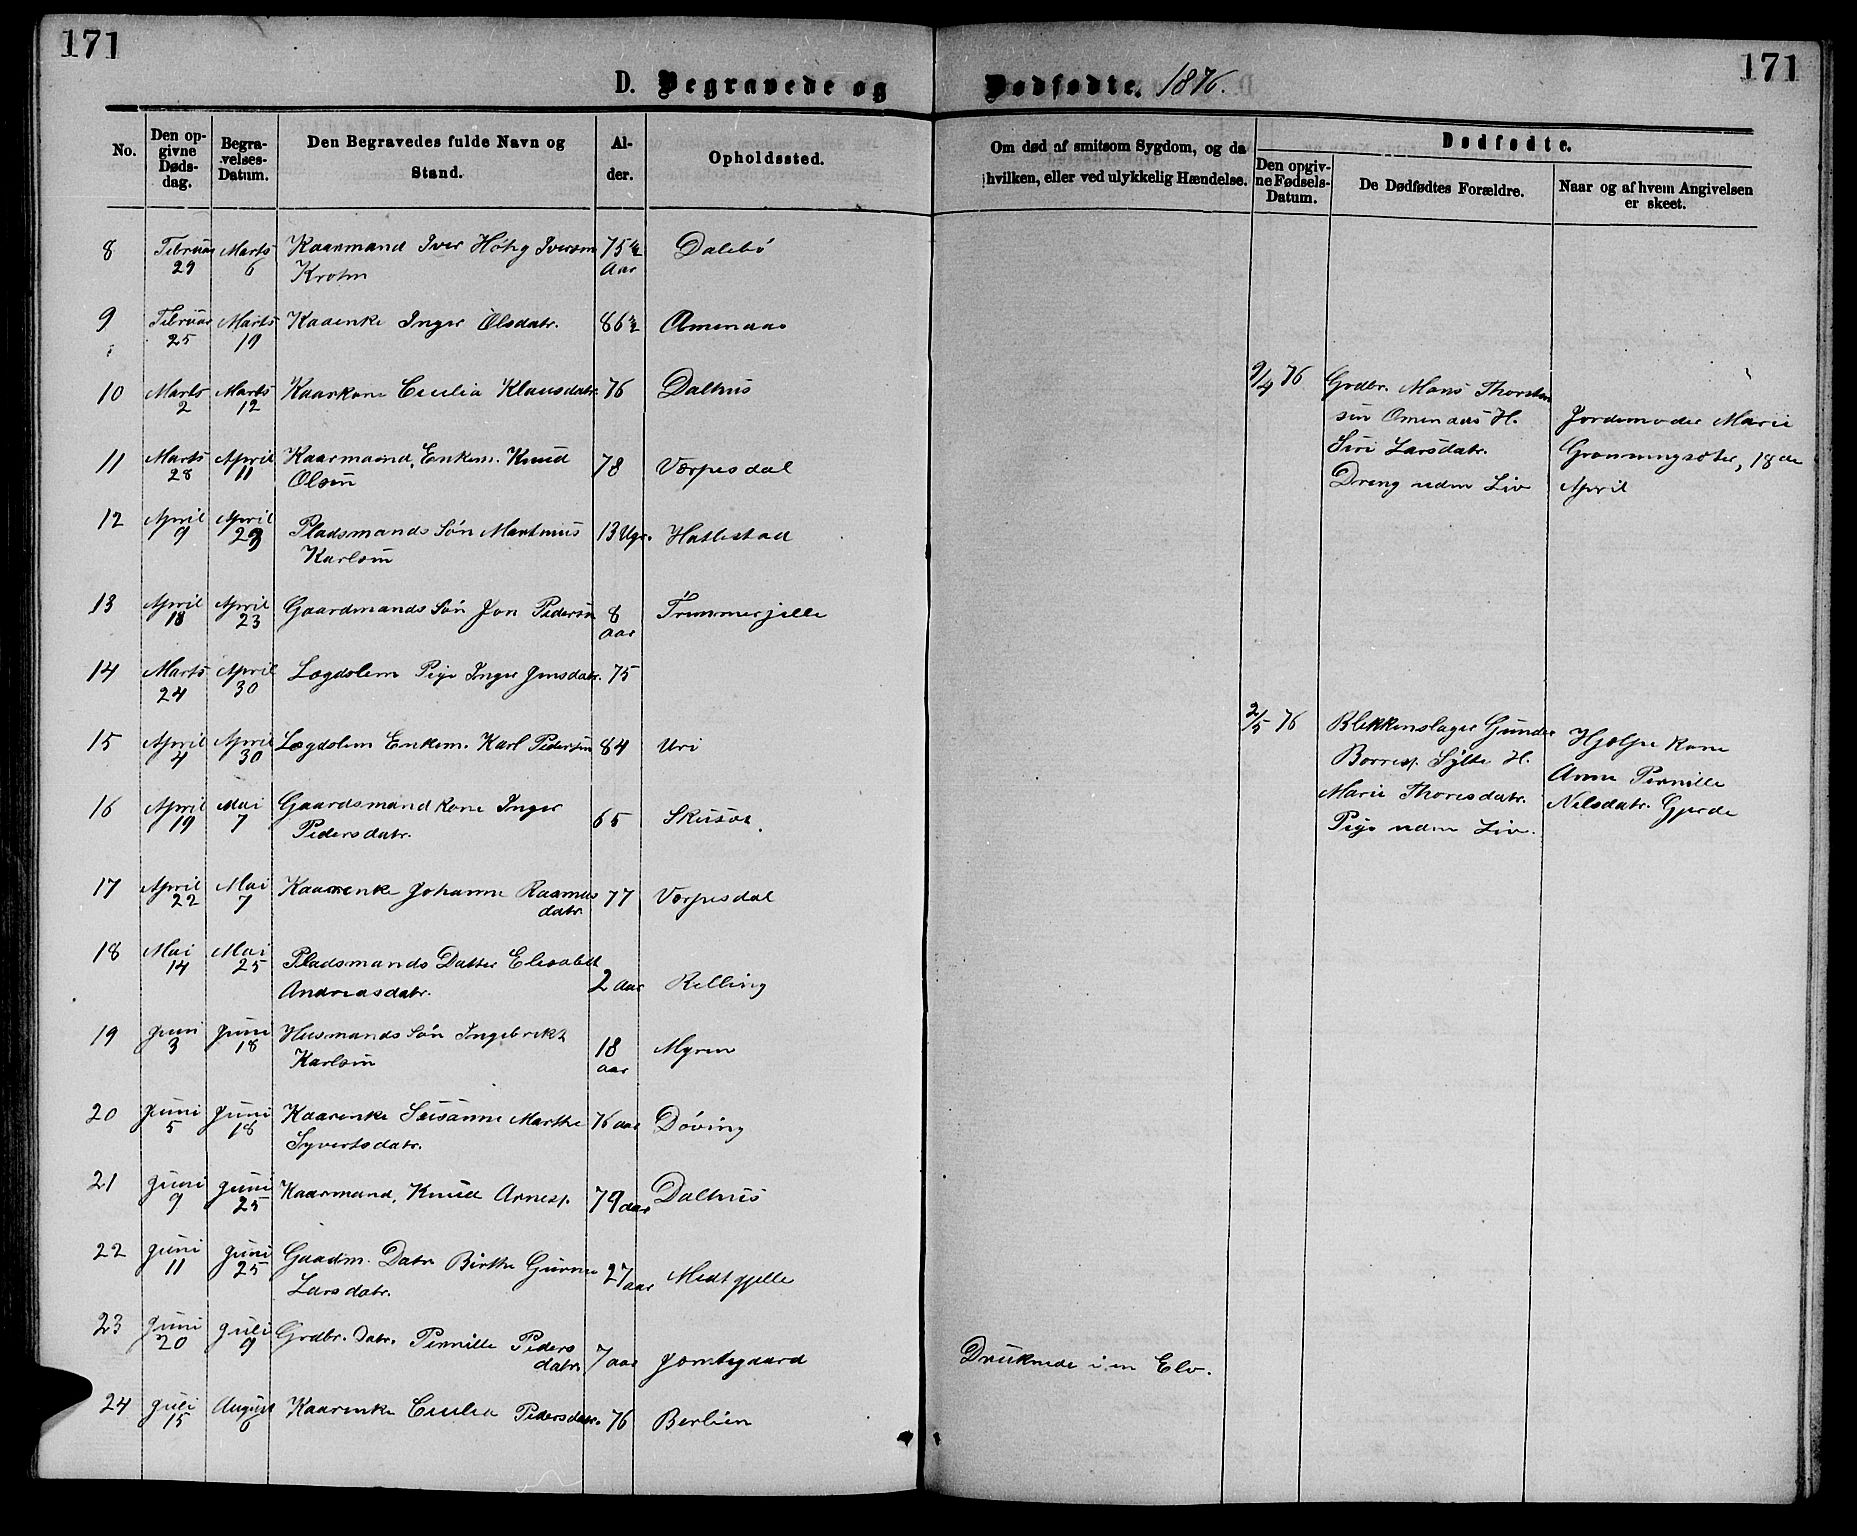 171
171
D. Begravede og Dødfødte. 1876.
No.
Den opgivne Dødsdag.
Begravelses-Datum.
Den Begravedes fulde Navn og Stand.
Alder.
Opholdssted.
Om død af smitsom Sygdom, og da hvilken, eller ved ulykkelig Hændelse.
Dødfødte.
Den opgivne Fødsels-Datum.
De Dødfødtes Forældre.
Naar og af hvem Angivelsen er skeet.
8 Februar 29 Marts 6 Kaarmand Iver Høhg Iversen Krohn 75 1/2 Aar Dalebø
9 Februar 25 Marts 19 Kaaenke Inger Olsdatr. 86 1/2 Omenaas
10 Marts 2 Marts 12 Kaarkone Cecilia Klausdatr. 76 Dalhus
11 Marts 28 April 11 Kaarmand, Enkem. Knud Olsen 78 Værpesdal
12 April 9 April 23 Pladsmands Søn Martinus Karlsen 13 Ugr. Hattestad
13 April 18 April 23 Gaardmands Søn Jon Pedersen 8 Aar Trimmerjelle
14 Marts 24 April 30 Lægdslem Pige Inger Jensdatr. 75
15 April 4 April 30 Lægdslem Enkem. Karl Pedersen 84 Uri
16 April 19 Mai 7 Gaardsmand Kone Inger Pedersdatr. 65 Skusæt
17 April 22 Mai 7 Kaarenke Johanne Rasmusdatr. 77 Værpesdal
18 Mai 14 Mai 25 Pladsmands Datter Elisabet Andreasdatr. 2 aar Relling
19 Juni 3 Juni 18 Husmands Søn Ingebrikt Karlsen 18 aar Myren
20 Juni 5 Juni 18 Kaarenke Susanne Marthe Syvertsdatr. 76 aar Døving
21 Juni 9 Juni 25 Kaarmand, Knud Arnesp. 79 aar Dalhus
22 Juni 11 Juni 25 Gaadm. Datr Birthe Gurine Larsdatr. 27 aar Medtgjelle
23 Juni 20 Juli 9 Grdbr. Datr. Pernille Pedersdatr. 7 aar Jamtegaard Druknede i en Elv.
24 Juli 15 August 6 Kaarenke Cecilia Pedersdatr. 76 Berlien
9/4 76
Grdbr. Mons Thorstensen Omenaas H.
Siri Larsdatr.
Dreng uden Liv
Jordemoder Marie
Grønningsæter, 18de
April
2/5 76
Blekkenslager Gunder
Borresp. Sylte H.
Marie Thoresdatr.
Pige uden Liv.
Hjælpe Kone
Anne Pernille
Nilsdatr. Gjerde